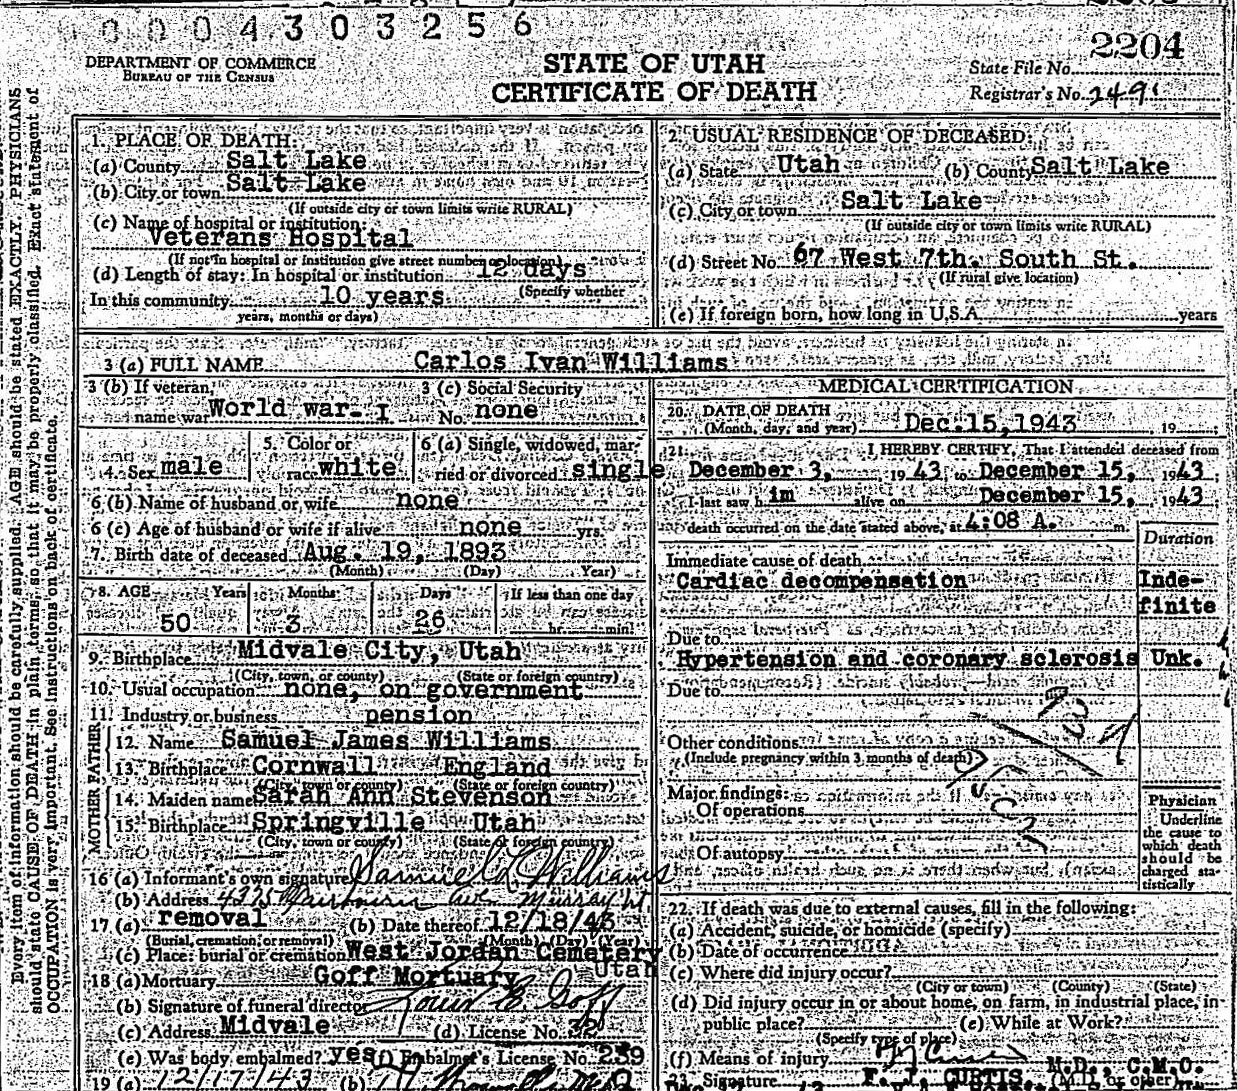 0004303256
2204
DEPARTMENT OF COMMERCE
BUREAU OF THE CENSUS
STATE OF UTAH
CERTIFICATE OF DEATH
State File No.
Registrar's No. 249
Every item of information should be carefully supplied. AGE should be stated EXACTLY. PHYSICIANS
should state CAUSE OF DEATH in plain terms, so that it may be properly classified. Exact statement of
OCCUPATION is very important. See instructions on back of certificate.
1. PLACE OF DEATH:
(a) County Salt Lake
(b) City or town Salt Lake
(If outside city or town limits write RURAL)
(c) Name of hospital or institution:
Veterans Hospital
(If not in hospital or institution give street number or location)
(d) Length of stay: In hospital or institution 12 days
(Specify whether
In this community 10 years
years, months or days)
2. USUAL RESIDENCE OF DECEASED:
(a) State Utah (b) County Salt Lake
(c) City or town Salt Lake
(If outside city or town limits write RURAL)
(d) Street No. 67 West 7th. South St.
(If rural give location)
(e) If foreign born, how long in U.S.A. years
3 (a) FULL NAME Carlos Ivan Williams
3 (b) If veteran, name war World war-I
3 (c) Social Security No. none
4. Sex male
5. Color or race white
6 (a) Single, widowed, married or divorced single
6 (b) Name of husband or wife none
6 (c) Age of husband or wife if alive none yrs.
7. Birth date of deceased Aug. 19, 1893
(Month) (Day) (Year)
8. AGE Years Months Days If less than one day
50 3 26 hr. min.
9. Birthplace Midvale City, Utah
(City, town, or county) (State or foreign country)
10. Usual occupation none, on government
11. Industry or business pension
FATHER
12. Name Samuel James Williams
13. Birthplace Cornwall England
(City, town or county) (State or foreign country)
MOTHER
14. Maiden name Sarah Ann Stevenson
15. Birthplace Springville Utah
(City, town or county) (State or foreign country)
16 (a) Informant's own signature Samuel L Williams
(b) Address 4375 Ave Murray Ut
17 (a) removal (b) Date thereof 12/18/43
(Burial, cremation, or removal) (Month) (Day) (Year)
(c) Place: burial or cremation West Jordan Cemetery
Utah
18 (a) Mortuary Goff Mortuary
(b) Signature of funeral director Goff
(c) Address Midvale (d) License No. 32
(e) Was body embalmed? yes (f) Embalmer's License No. 239
19 (a) 12/17/43 (b)
MEDICAL CERTIFICATION
20. DATE OF DEATH
(Month, day, and year) Dec. 15, 1943 19
21. I HEREBY CERTIFY, That I attended deceased from
December 3, 1943, to December 15, 1943;
I last saw him alive on December 15, 1943
death occurred on the date stated above, at 4:08 A. m.
Duration
Immediate cause of death
Cardiac decompensation Inde-
finite
Due to
Hypertension and coronary sclerosis Unk.
Due to
Other conditions
(Include pregnancy within 3 months of death)
Major findings:
Of operations
Of autopsy
Physician
Underline
the cause to
which death
should be
charged sta-
tistically
22. If death was due to external causes, fill in the following:
(a) Accident, suicide, or homicide (specify)
(b) Date of occurrence
(c) Where did injury occur?
(City or town) (County) (State)
(d) Did injury occur in or about home, on farm, in industrial place, in
public place? (e) While at Work?
(Specify type of place)
(f) Means of injury
23. Signature F. J. CURTIS M.D., C.M.O.